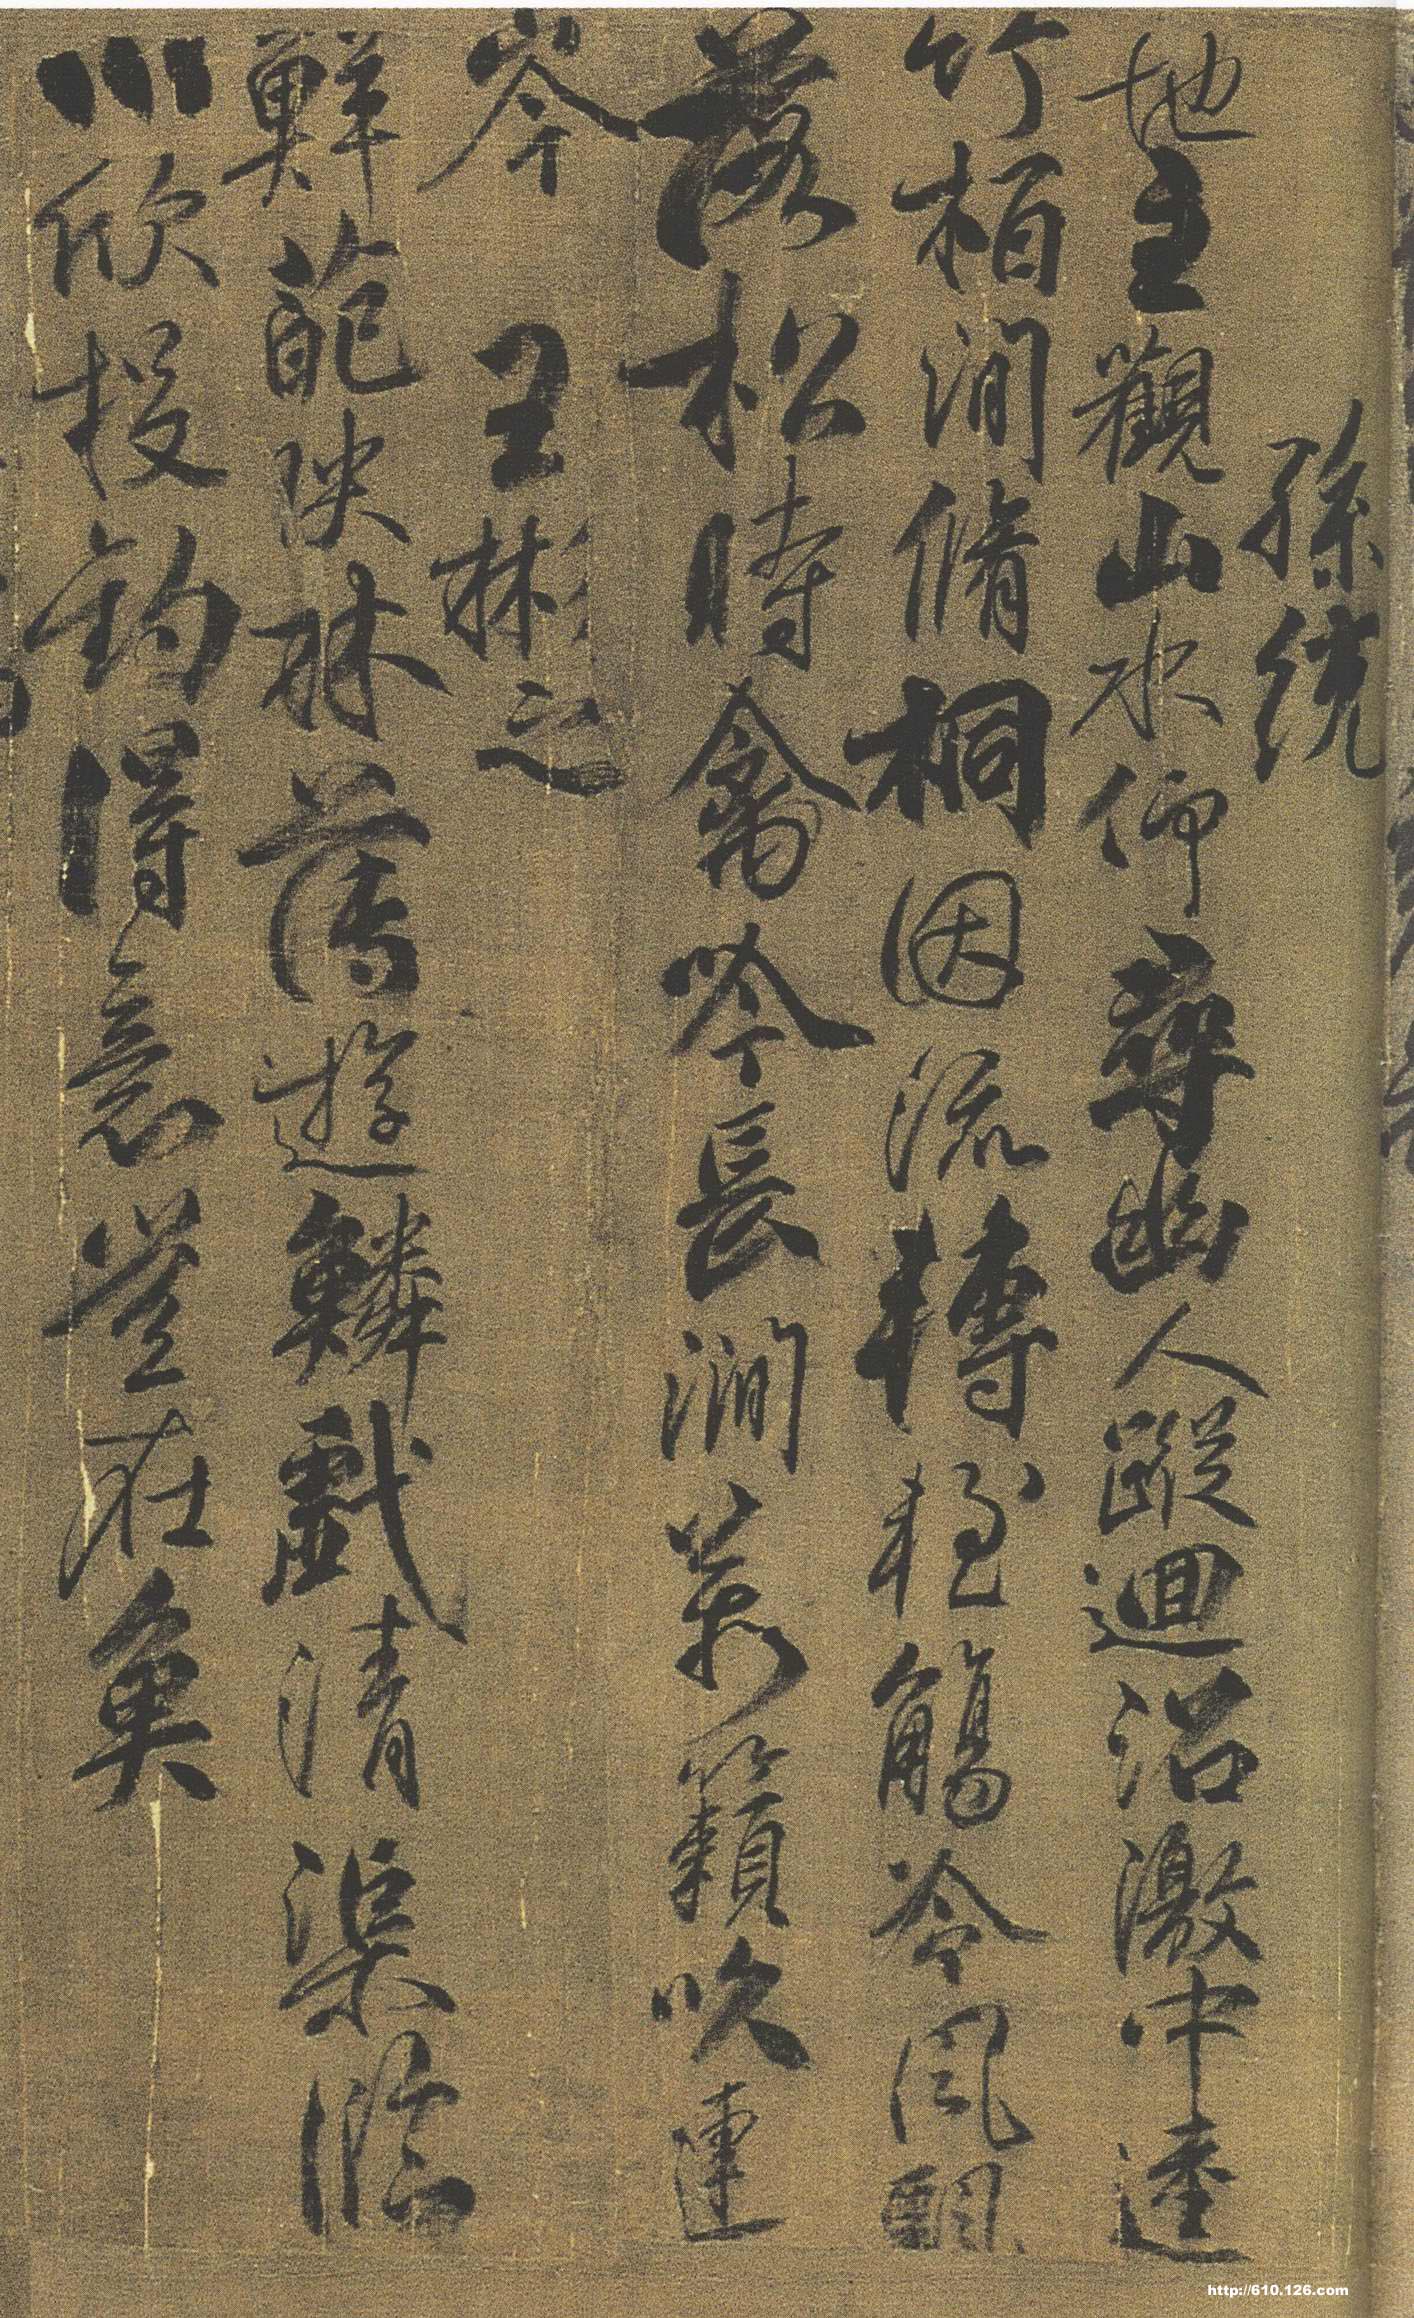 孫統
地主觀山水仰尋幽人蹤迴沼激中逵
竹栢澗脩桐因流轉輕觴冷風飄
落松時禽吟長澗萬籟吹連
岑 王彬之
鮮葩映林薄遊鱗戲清渠臨
川欣投釣得意豈在魚
http://610.126.com